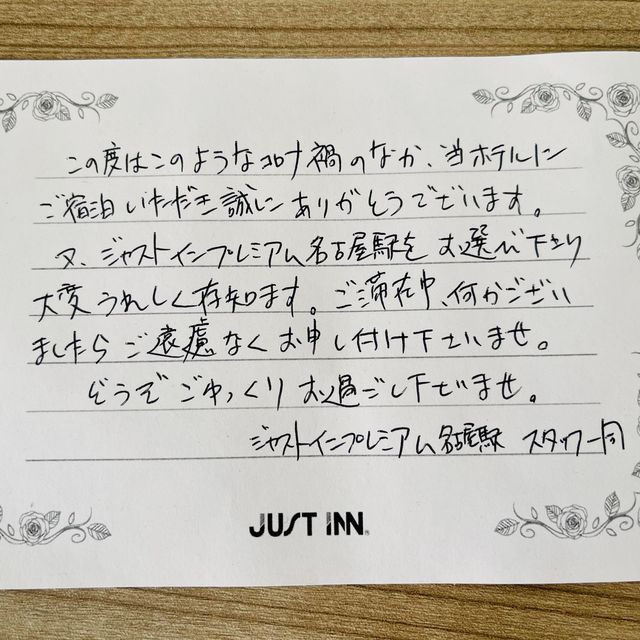 この度はこのようなコロナ禍のなか、当ホテルに
ご宿泊いただき誠にありがとうございます。
又、ジャストインプレミアム名古屋駅をお選び下さり
大変うれしく存知ます。ご滞在中、何かござい
ましたらご遠慮なくお申し付け下さいませ。
どうぞごゆっくりお過ごし下さいませ。
ジャストインプレミアム名古屋駅 スタッフ一同
JUST INN